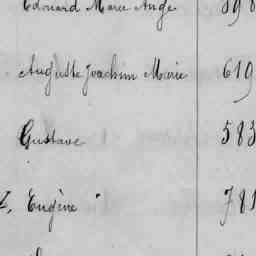 Edouard Marie Ange
Auguste Joachim Marie 619
Gustave 583
Eugène 781